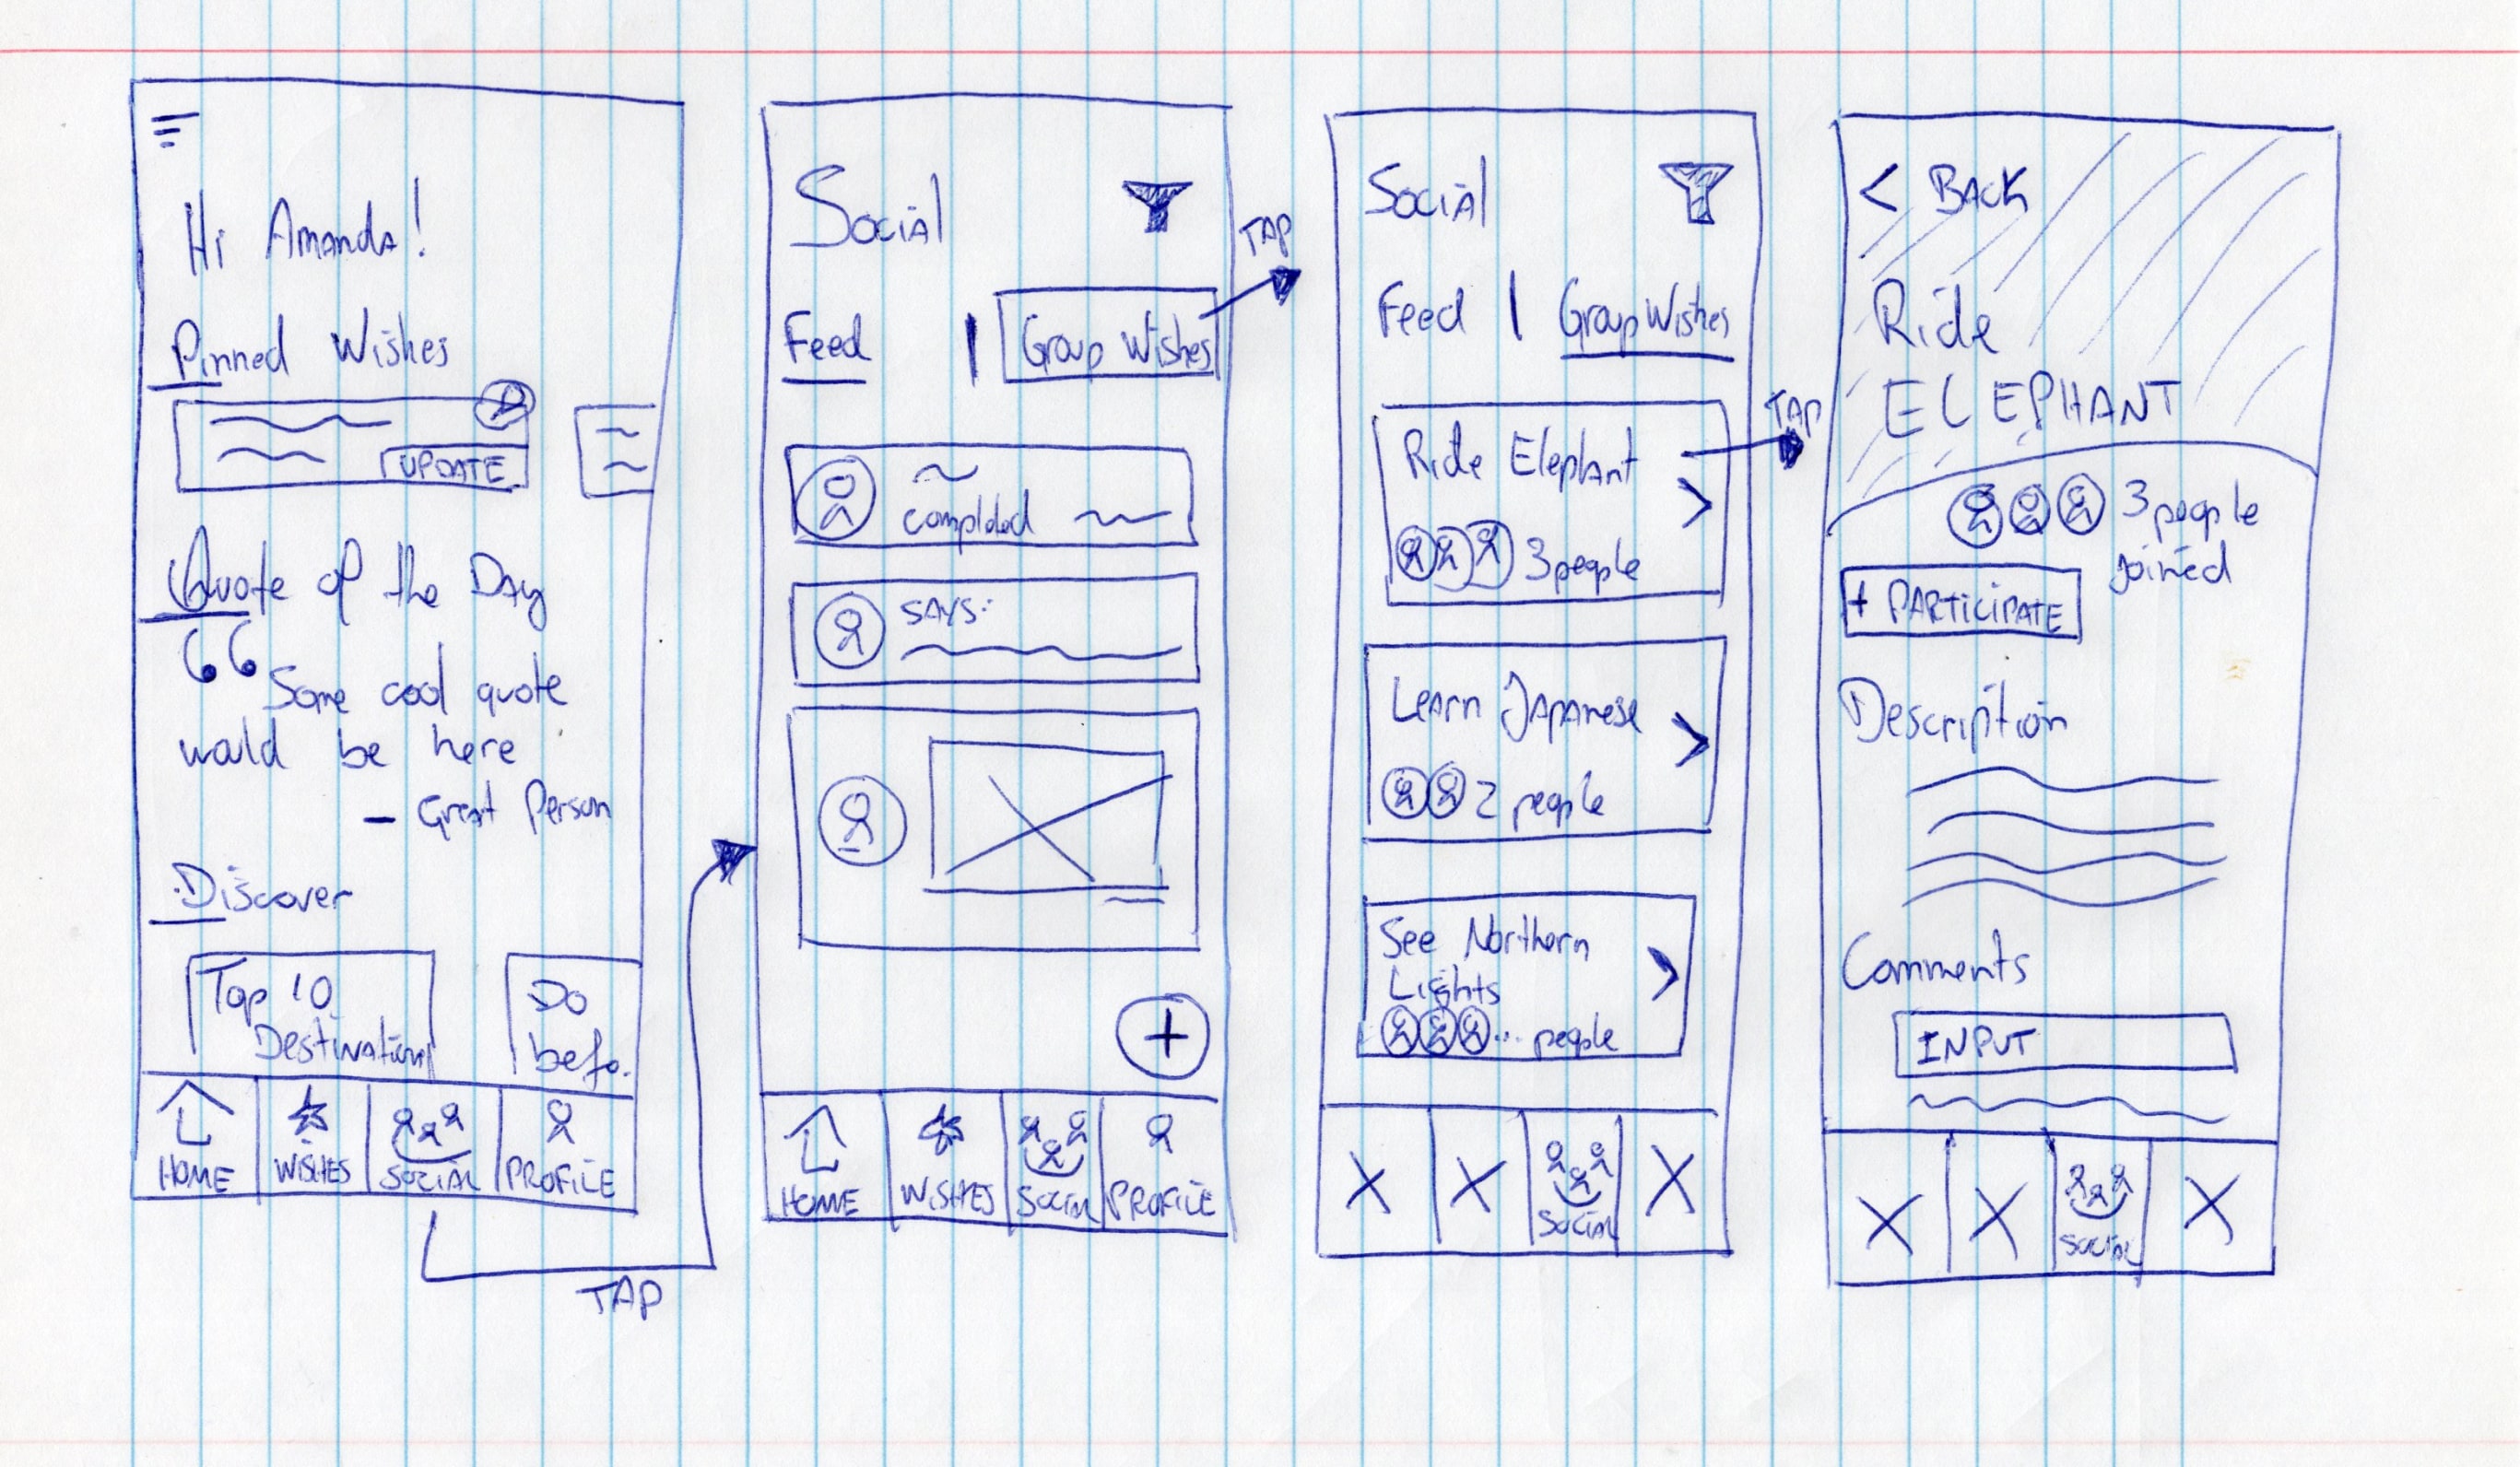 Hi Amanda!
Pinned Wishes
UPDATE
Quote of the Day
“ Some cool quote
would be here
- Great Person
Discover
Top 10
Destination
Do
befo.
HOME
WISHES
SOCIAL
PROFILE
TAP
Social
Feed | Group Wishes
TAP
completed
SAYS:
+
HOME
WISHES
SOCIAL
PROFILE
Social
Feed | Group Wishes
Ride Elephant
>
3 people
TAP
Learn Japanese
>
2 people
See Northern
Lights
>
... people
SOCIAL
< BACK
Ride
ELEPHANT
3 people
joined
+ PARTICIPATE
Description
Comments
INPUT
SOCIAL